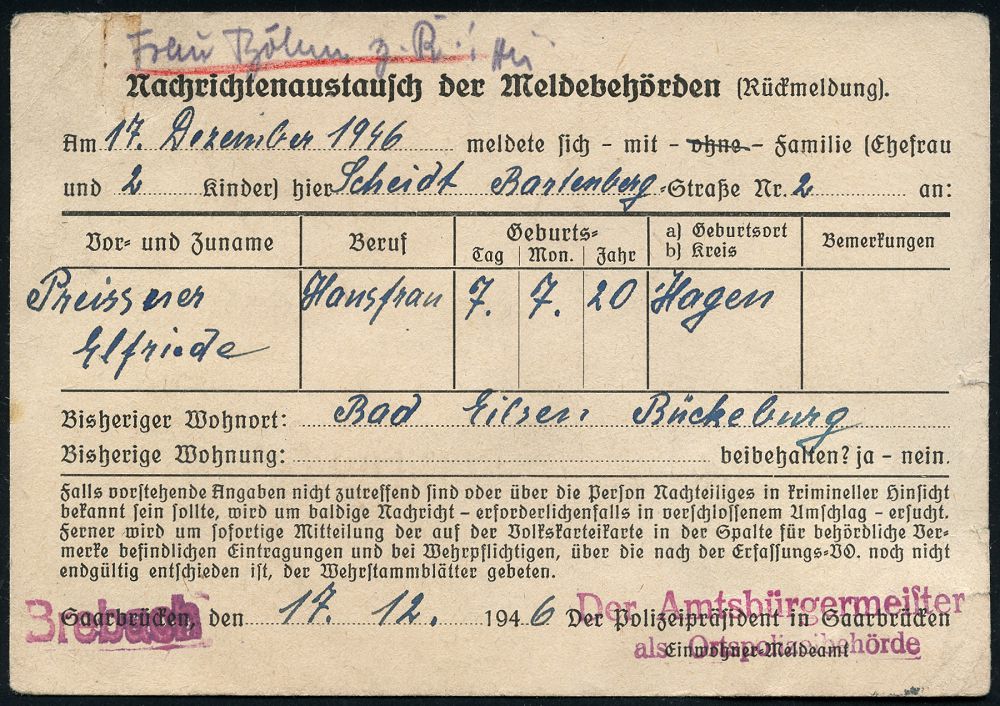 Frau Böhm z. R.!
Nachrichtenaustausch der Meldebehörden (Rückmeldung).
Am 17. Dezember 1946 meldete sich - mit - ohne - Familie (Ehefrau
und 2 Kinder) hier Scheidt Bartenberg-Straße Nr. 2 an:
Vor- und Zuname Beruf Geburts= a) Geburtsort Bemerkungen
Tag Mon. Jahr b) Kreis
Preissner Hausfrau 7. 7. 20 Hagen
Elfriede
Bisheriger Wohnort: Bad Eilsen Bückeburg
Bisherige Wohnung: beibehalten? ja - nein.
Falls vorstehende Angaben nicht zutreffend sind oder über die Person Nachteiliges in krimineller Hinsicht
bekannt sein sollte, wird um baldige Nachricht - erforderlichenfalls in verschlossenem Umschlag - ersucht.
Ferner wird um sofortige Mitteilung der auf der Volkskarteikarte in der Spalte für behördliche Ver-
merke befindlichen Eintragungen und bei Wehrpflichtigen, über die nach der Erfassungs-VO. noch nicht
endgültig entschieden ist, der Wehrstammblätter gebeten.
Brebach
Der Amtsbürgermeister
Saarbrücken, den 17. 12. 1946 Der Polizeipräsident in Saarbrücken
als Ortspolizeibehörde
Einwohner-Meldeamt